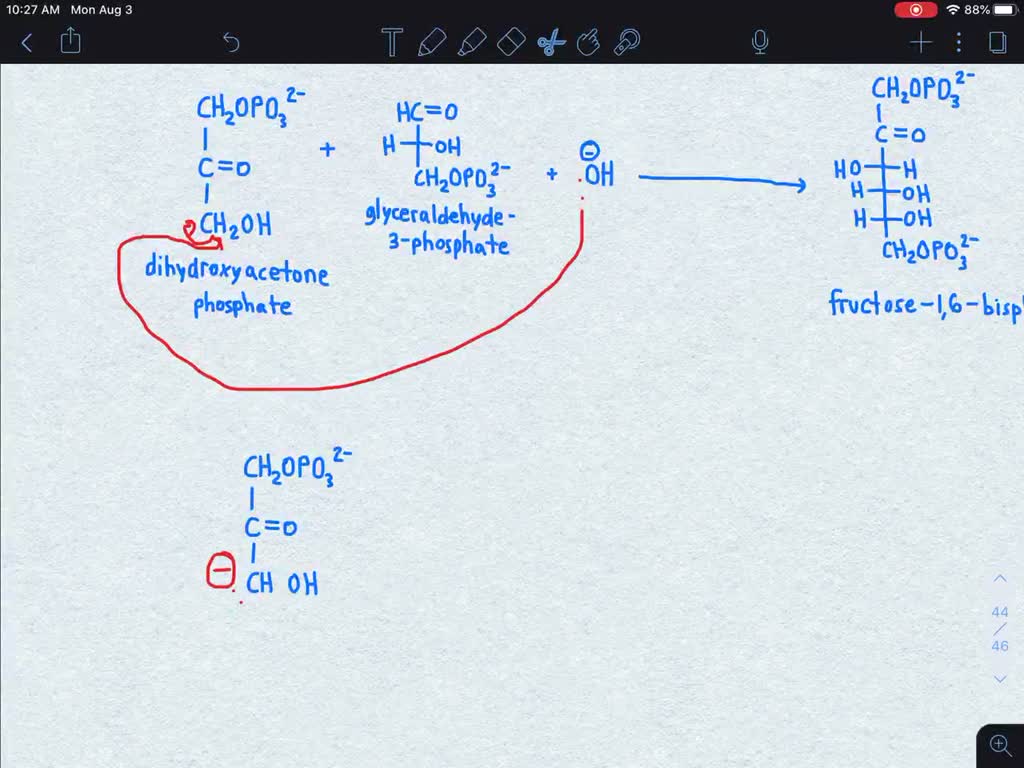 10:27 AM Mon Aug 3
88%
T
CH₂OPO₃²⁻
C=O
CH₂OH
dihydroxyacetone
phosphate
+
HC=O
H OH
CH₂OPO₃²⁻
glyceraldehyde-
3-phosphate
+
⊖
OH
CH₂OPO₃²⁻
C=O
HO H
H OH
H OH
CH₂OPO₃²⁻
fructose-1,6-bisp
CH₂OPO₃²⁻
C=O
⊖ CH OH
44
/
46